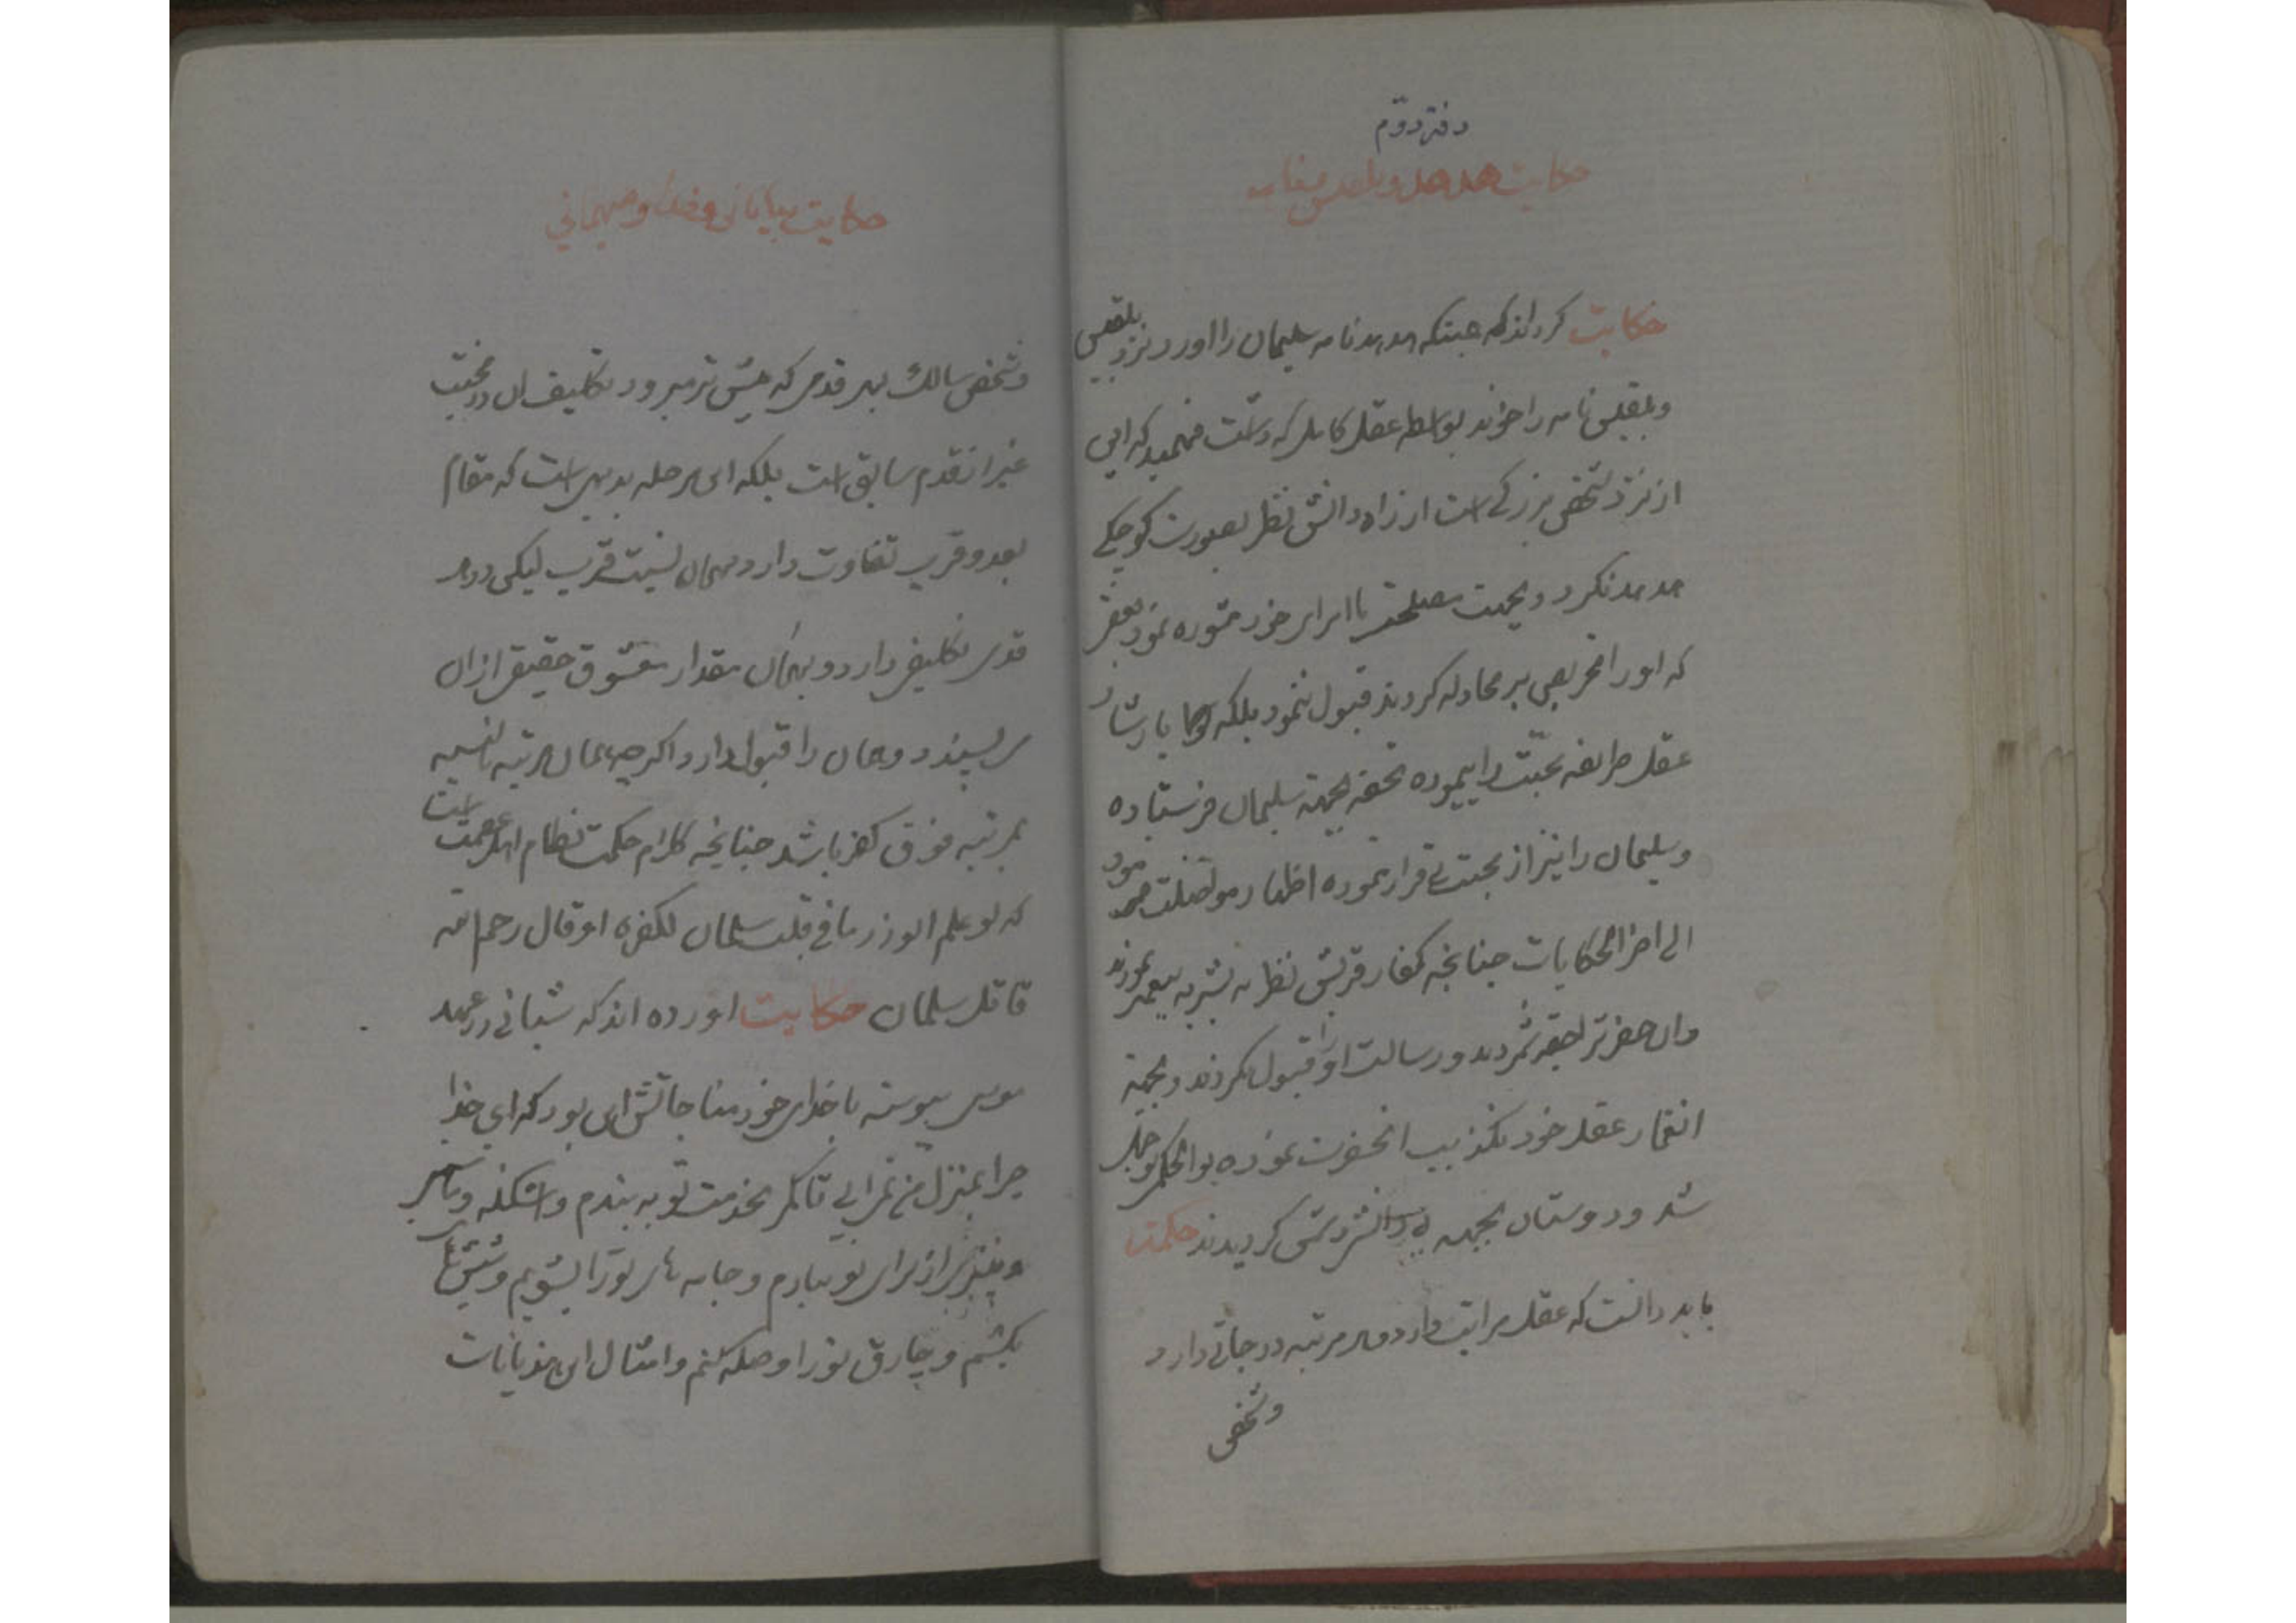 دفتر دوّم
حکایت هدهد و بلقیس
حکایت کرده‌اند که هدهد نامه سلیمان را اورد نزد بلقیس
و بلقیس نامه را خواند بواسطه عقل کاملی که داشت فهمید که این
از نزد شخص بزرگی است از راه دانش نظر بصورت کوچکی
هدهد نکرد و بجهت مصلحت با امرای خود مشوره نمود
که او را تحریص بر مجادله کردند قبول ننمود بلکه
عقل طریقه محبّت را پیموده تحفه بجهته سلیمان فرستاده
و سلیمان را نیز از محبت بی قرار نموده اظهار مواصلت
الی اخر الحکایات چنانچه کفار قریش نظر به بشریه پیغمبر نمودند
وان حضرترا حقیر شمردند و رسالت او را قبول نکردند و بجهته
عقل خود تکذیب انحضرت نموده بوالحکم بوجهل
شد و دوستان بجهه بی دانشی دشمن کردیدند حکمت
باید دانست که عقل مراتب دارد و هر مرتبه درجاتی دارد
و شخص
حکایت و مهمانی
و شخص سالک بهر قدمی که پیش تر میرود تکلیف ان در محبت
غیر از قدم سابق است بلکه این مرحله بدیهی است که مقام
بعد و قرب تفاوت دارد و همان نسبت قرب لیکن در هر
قدمی تکلیفی دارد و بهمان مقدار معشوق حقیقی از ان
می پسندد و همان را قبول دارد اگر چه همان مرتبه بالنسبه
بمرتبه فوق کفر باشد چنانچه کلام حکمت نظام اهل عصمت است
که لو علم ابوذر ما فی قلب سلمان لکفره او قال رحم الله
قاتل سلمان حکایت اورده اند که شبانی در عهد
موسی پیوسته با خدای خود مناجاتش این بود که ای خدا
چرا بمنزل من نمی ایی تا کمر بخدمت تو به بندم و اشکنه و ماس
و پنیر از برای تو بیارم و جامه های تو را بشویم و شپش ها
بکشم و چارق تو را وصله کنم و امثال این هذیانات